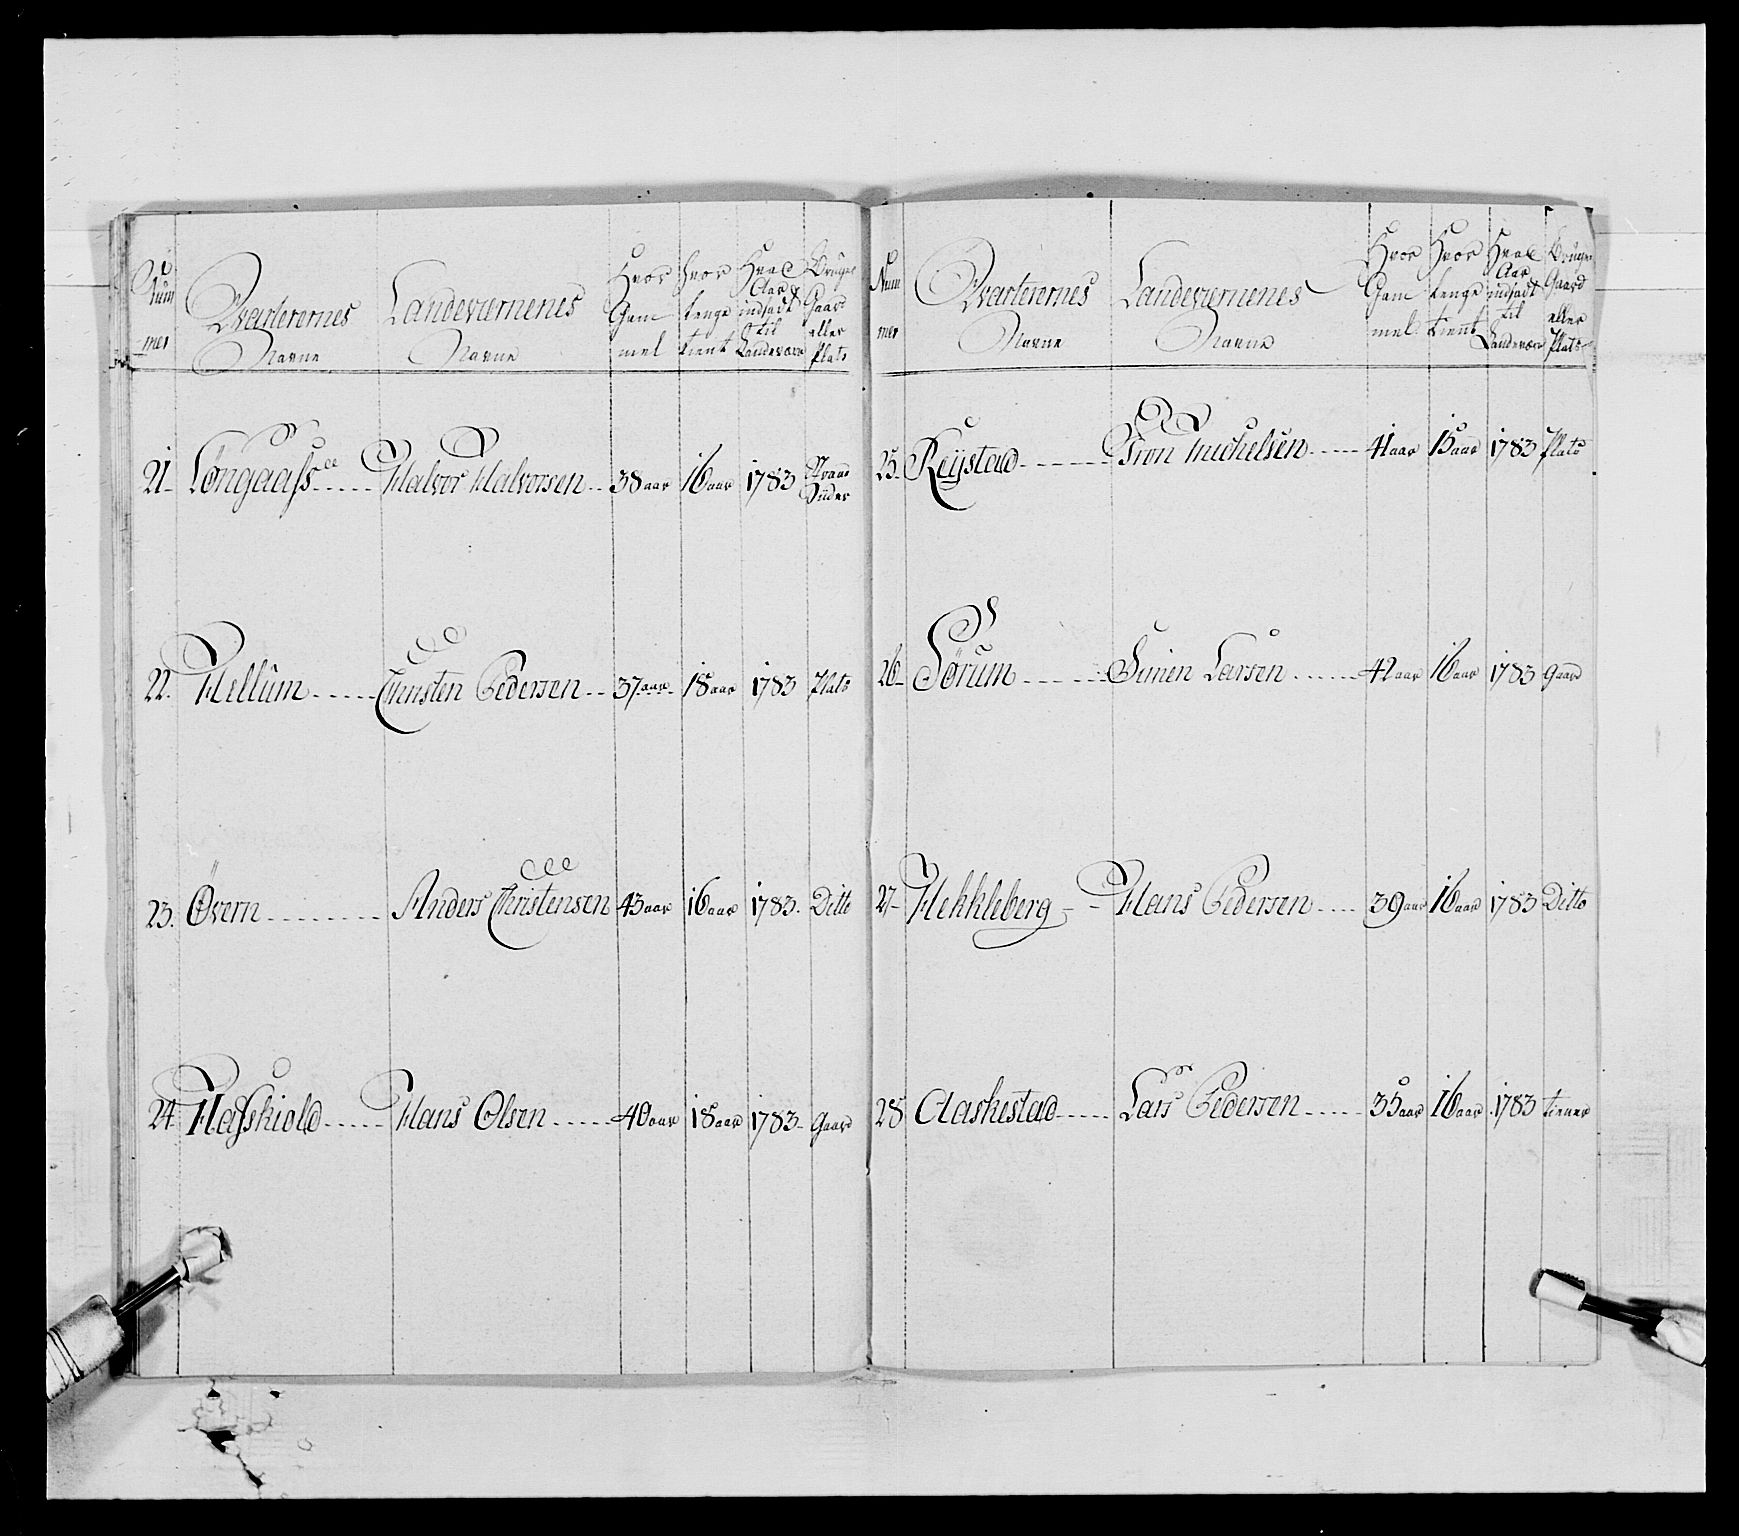 Num mer | Qvarterernes Navne | Landeværnenes Navne | Hvor Gam mel | hvor lenge tient | Hvad Aar indsadt til Landeværn | Bruger Gaard eller Plats
21 Löngaass Halvor Halvorsen 38 aar 16 aar 1783 Strand Sider
22. Hellum Christen Pedersen 37 aar 18 aar 1783 Plats
23. Övern Anders Christensen 43 aar 16 aar 1783. Ditto
24 Hasskiold Hans Olsen 40 aar 18 aar 1783 Gaard
Num mer | Qvarterernes Navne | Landeværnenes Navne | Hvor Gam mel | Hvor lenge tient | Hvad Aar indsadt til Landeværn | Bruger Gaard eller Plats
25 Reÿstad Tron Michelsen 41 aar 15 aar 1783 Plats
26 Sørum Simen Larsen 42 aar 16 aar 1783 Gaard
27 Hekkleberg Hans Pedersen 39 aar 16 aar 1783 Ditto
28 Aaskestad Lars Pedersen 35 aar 16 aar 1783 tiener